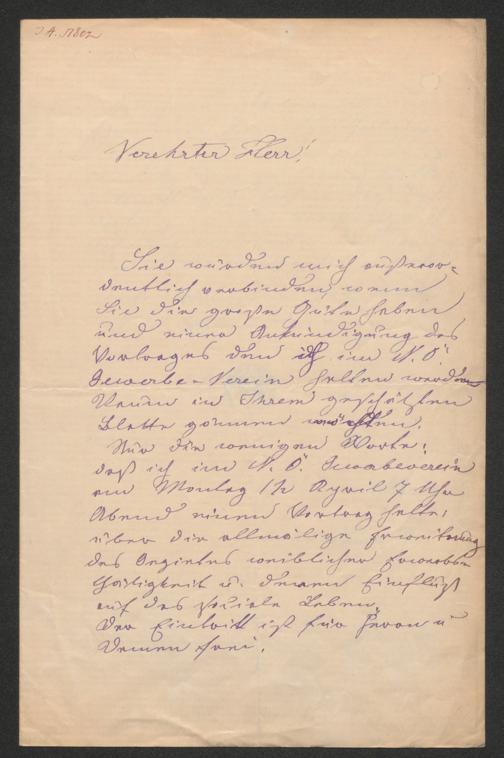 Verehrter Herr!
Sie würden mich außeror=
dentlich verbinden, wenn
Sie die große Güte haben
und einer Ankündigung des
Vortrages den ich im N. Ö.
Gewerbe-Verein halten werde
Raum in Ihrem geschätzten
Blatte gönnen möchten.
Nur die wenigen Worte:
daß ich im N. Ö. Gewerbeverein
am Montag April 7 Uhr
Abend einen Vortrag halte:
über die allmälige Erweiterung
des Gebietes weiblicher Erwerbs-
thätigkeit u. deren Einfluß
auf das sociale Leben.
Der Eintritt ist für Herren u
Damen frei.